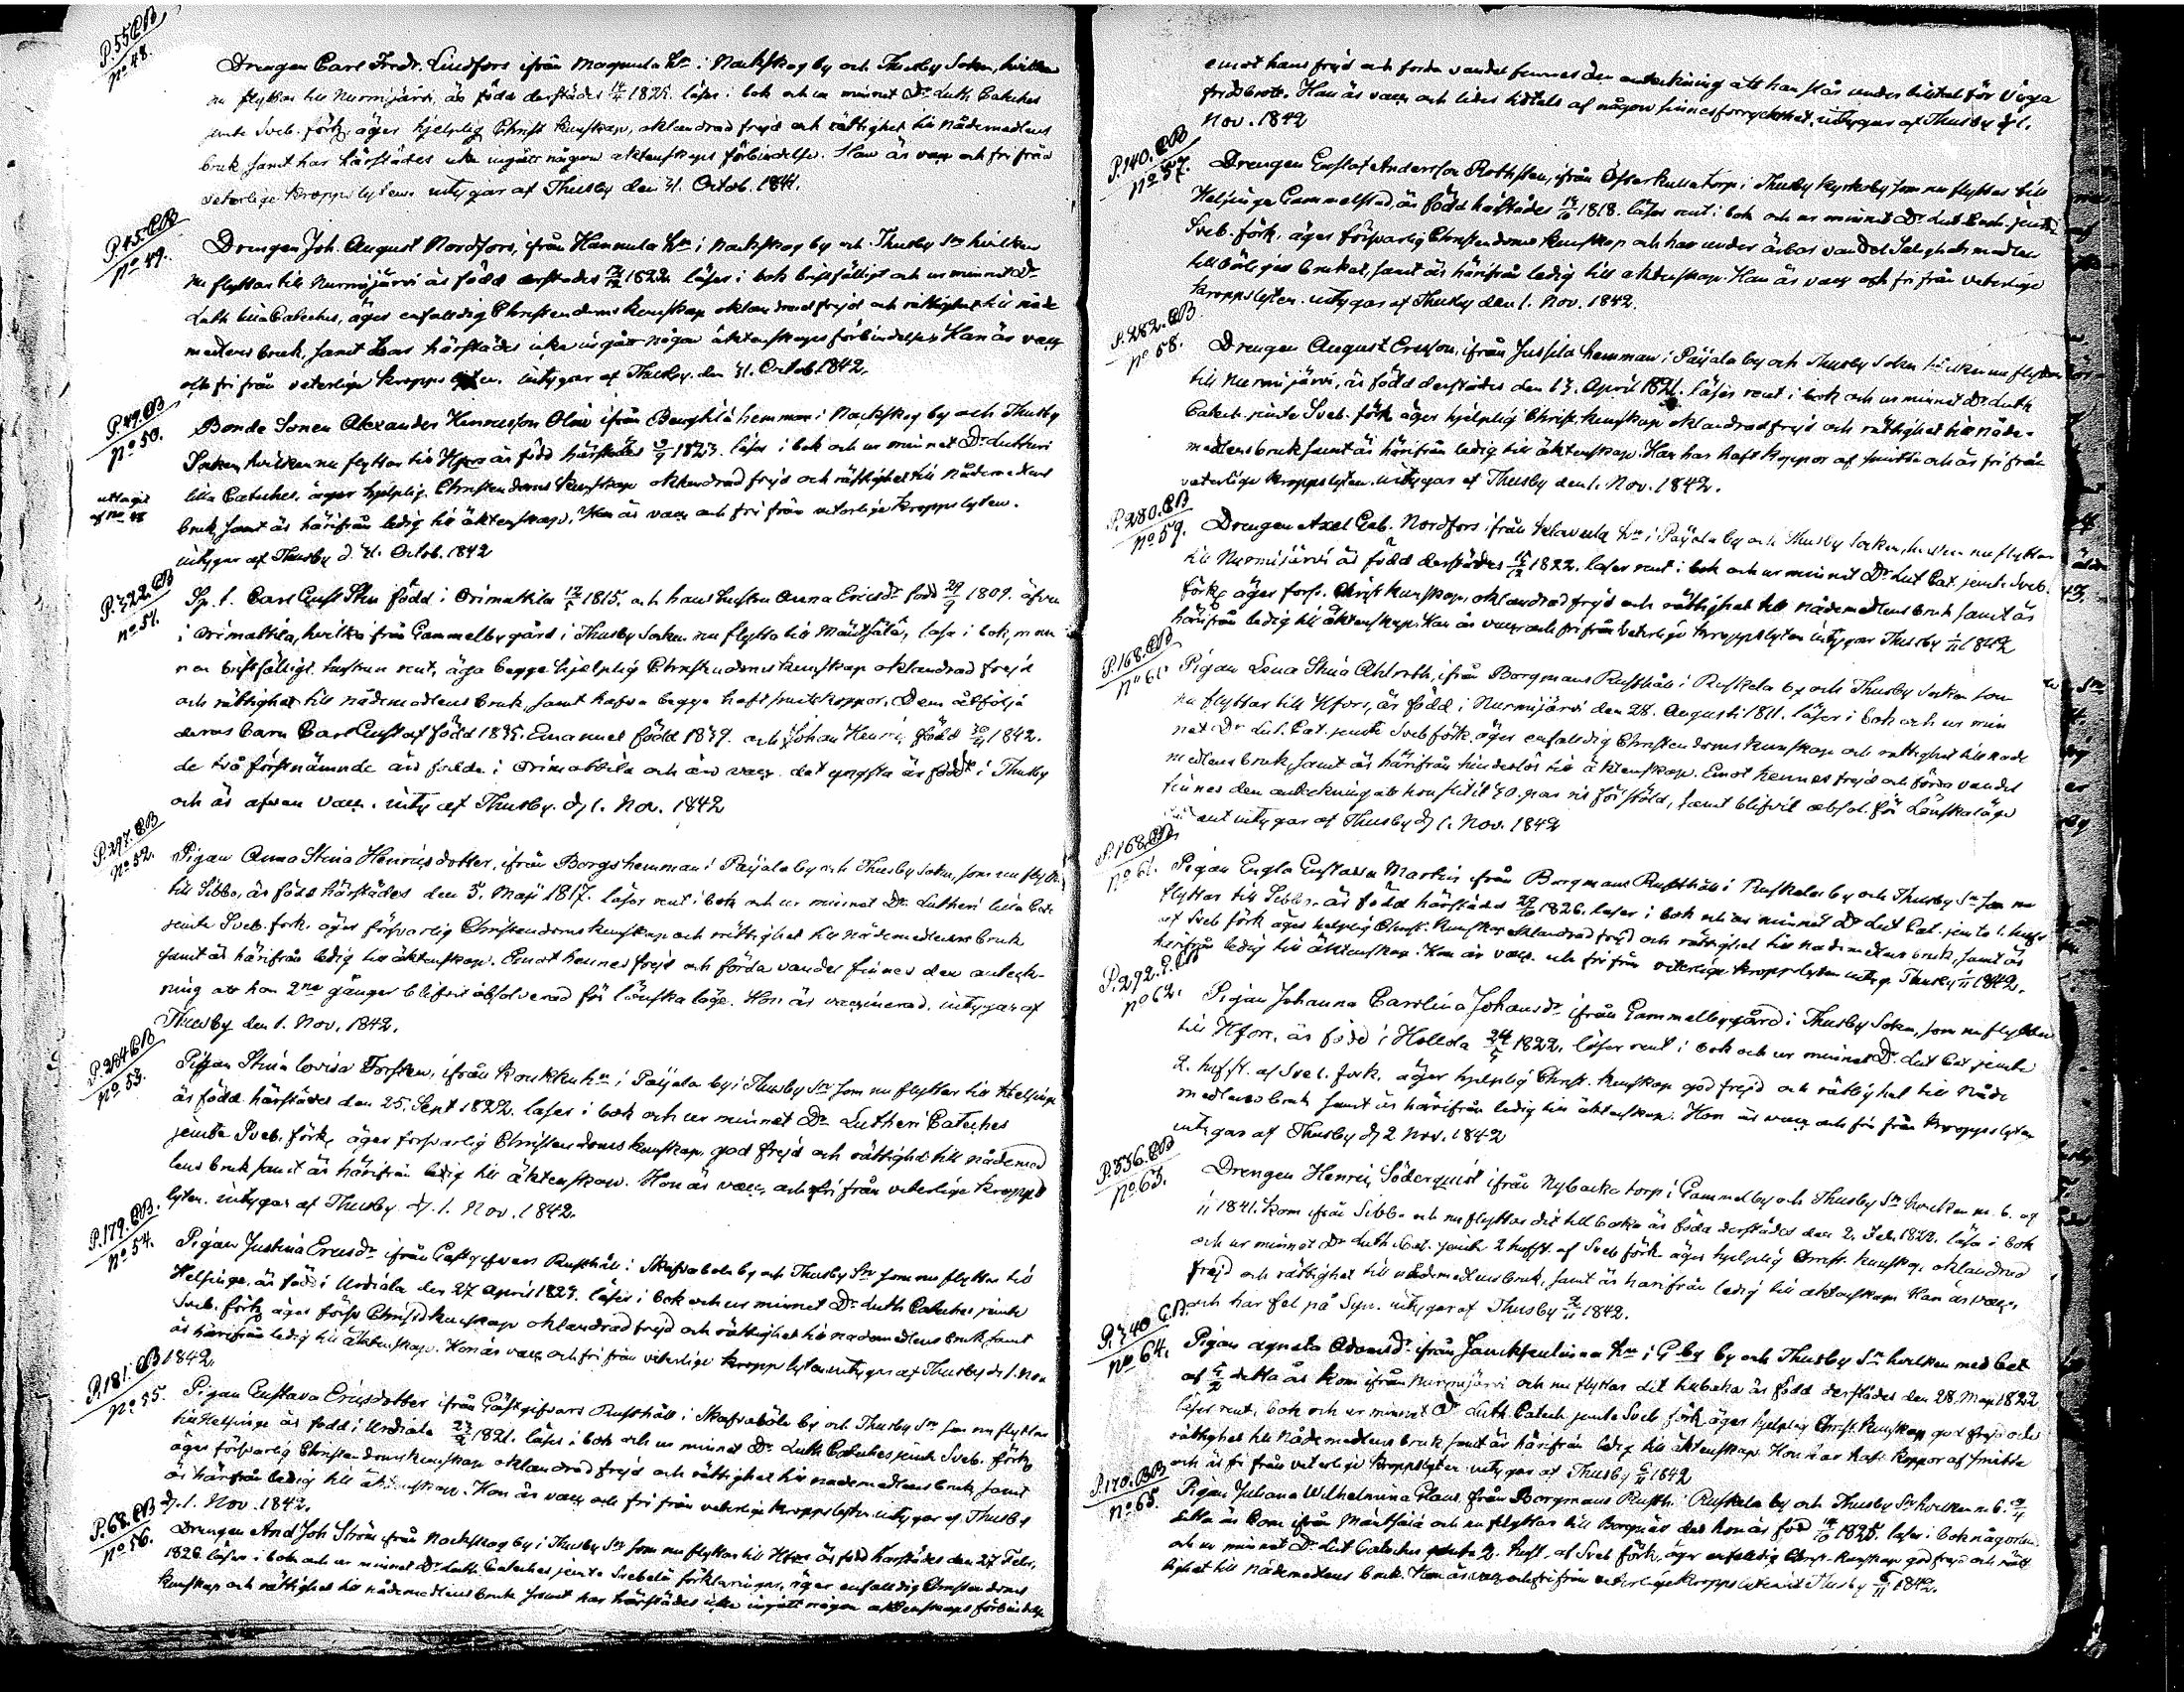 P.55 CB
no 48.
Drengen Carl Fredr. Lindfors ifrån Magnula Hn i Nackskog by och Thusby Soken, hvilken
nu flyttar till Nurmijärvi, är född derstädes 1825. läser i bok och ur minnet Dr Luth Cateches
jemte Sveb. förk. äger hjelplig Christ. kunskap, oklandrad frejd och rättighet till nådemedlens
bruk samt har härstädes icke ingått någon äktenskaps förbindelse. Han är vacc. och fri från
veterlige kroppslyten. intygar af Thusby den 31. Octob. 1842.
P.45. CB
no 49.
Drengen Joh. August Nordfors, ifrån Hannula Hn i Nackskog by och Thusby Sn hvilken
nu flyttar till Nurmijärvi är född derstädes 1822. läser i bok bristfälligt och ur minnet Dr
Luth lilla Cateches, äger enfalldig Christendoms kunskap oklandrad frejd och rättighet till nåde
medlens bruk, samt har härstädes icke ingått någon äktenskaps förbindelse. Han är vacc
och fri från veterlige kropps lyten. intygar af Thusby. den 31. Octob. 1842.
P.49. CB
no 50.
Bonde Sonen Alexander Henricsson Olin ifrån Bengtilä hemman i Nackskog by och Thusby
Soken, hvilken nu flyttar till Hfors är född härstädes 1823. läser i bok och ur minnet Dr Lutheri
uttagit
af no 48
lilla Cateches. äger hjelplig Christendoms kunskap oklandrad frejd och rättighet till nådemedlens
bruk samt är härifrån ledig till äktenskap. Han är vacc och fri från veterlige kroppslyten.
intygar af Thusby d. 31. Octob. 1842
P.322. CB
no 51.
Carl Gust född i Orimattila 1815. och hans hustru Anna Ericsdr född 29/9 1809. äfven
i Orimattila, hvilka från Gammelby gård i Thusby Soken nu flytta till Mäntsälä, läsa i bok, man
nen bristfälligt hustrun rent, äga begge hjelplig Christendoms kunskap oklandrad frejd
och rättighet till nådemedlens bruk, samt hafva begge haft smittkoppor. Dem åtfölja
deras barn Carl Gustaf född 1835. Emanuel född 1839. och Johan Henric född 1842.
de två förstnämnde äro födde i Orimattila och äro vacc. det yngsta är född i Thusby
och är afven vacc. inty af Thusby. d. 1. Nov. 1842
P.297. CB
no 52.
Pigan Anna Stina Henricsdotter, ifrån Borgs hemman i Paijala by och Thusby Soken, som nu flyttar
till Sibbo, är född härstädes den 5. Maji 1817. läser rent i bok och ur minnet Dr Lutheri lilla Cate
jemte Sveb. fork. äger försvarlig Christendoms kunskap och rättighet till nådemedlens bruk
samt är härifrån ledig till äktenskap. Emot hennes frejd och förda vandel finnes den anteck-
ning att hon 2ne gånger blifvit absolverad för lönska läge. Hon är vaccinerad. intygar af
Thusby den 1. Nov. 1842.
P.284 CB
no 53.
Pigan Stina Lovisa Forsten, ifrån Koukku hn i Paijala by i Thusby Sn som nu flyttar till Helsinge
är född härstädes den 25. Sept 1822. läser i bok och ur minnet Dr Lutheri Cateches
jemte Sveb. förk. äger försvarlig Christendoms kunskap, god frejd och rättighet till nådemed
lens bruk samt är härifrån ledig till äktenskap. Hon är vacc. och fri från veterlige kropps
lyten. intygar af Thusby d. 1. Nov. 1842.
P.179. CB.
no 54.
Pigan Justina Ericsdr ifrån Gästgifvars Rusthåll i Skafvaböle by och Thusby Sn som nu flyttar till
Helsinge, är född i Urdiala den 27 April 1823. läser i bok och ur minnet Dr Luth Cateches jemte
Sveb. förk. äger försv Christ kunskap oklandrad frejd och rättighet till nådemedlens bruk, samt
är härifrån ledig till äktenskap. Hon är vacc och fri från veterlige kropps lyten intygar af Thusby d. 1. Nov
1842.
P.181. CB
no 55.
Pigan Gustava Ericsdotter ifrån Gästgifvars Rusthåll i Skafvaböle by och Thusby Sn som nu flyttar
till Helsinge är född i Urdiala 1821. läser i bok och ur minnet Dr Luth Cateches jemte Sveb. förk.
äger försvarlig Christendoms kunskap oklandrad frejd och rättighet till nådemedlens bruk samt
är härifrån ledig till äktenskap. Hon är vacc och fri från veterlige kroppslyten intygar af Thusby
d. 1. Nov. 1842.
P.68. CB
no 56.
Drengen And Joh Ström ifrån Nackskog by i Thusby Sn som nu flyttar till Hfors är född härstädes den 27 Febr.
1826 läser i bok och ur minnet Dr Luth Cateches jemte Svebelii förklaringar, äger enfalldig Christendoms
kunskap och rättighet till nådemedlens bruk samt har härstädes icke ingått någon äktenskaps förbindelse
emot hans frejd och förda vandel finnes den anteckning att han står under tilltal för
fridsbrott. Han är vacc och lider tidtals af någon sinnesförryckthet. intygar af Thusby d. 1.
Nov. 1842
P.140. CB
no 57.
Drengen Gustaf Andersson Rothsten, ifrån Österkulla torp i Thusby Kyrkoby som nu flyttar till
Helsinge Gammelstad, är född härstädes 1818. läser rent i bok och ur minnet Dr Lut. Cat. jemte
Sveb. förk. äger försvarlig Christendoms kunskap och har under ärbar vandel Salighets medlen
tillbörligen brukat, samt är härifrån ledig till äktenskap. Han är vacc och fri från veterlige
kroppslyten. intygar af Thusby den 1. Nov. 1842.
P.282. CB
no 58.
Drengen August Ericsson, ifrån Jussila hemman i Paijala by och Thusby Soken hvilken nu flyttar
till Nurmijärvi, är född derstädes den 13. April 1821. läser rent i bok och ur minnet Dr Luth
Catech. jemte Sveb. förk. äger hjelplig Christ. kunskap oklandrad frejd och rättighet till nåde-
medlens bruk samt är härifrån ledig till äktenskap. Han har haft koppor af smitta och är fri från
veterlige kroppslyten. intygar af Thusby den 1. Nov. 1842.
P.280. CB
no 59.
Drengen Axel Gab. Nordfors ifrån hn i Paijala by och Thusby Soken, hvilken nu flyttar
till Nurmijärvi är född derstädes 15/12 1822. läser rent i bok och ur minnet Dr Lut Cat. jemte Sveb.
förk. äger förs. Christ kunskap, oklandrad frejd och rättighet till nådemedlens bruk samt är
härifrån ledig till äktenskap. Han är vacc och fri från veterlige kroppslyten intygar Thusby 1/11 1842
P.168. CB
no 60
Pigan Lena Stina Ahlroth, ifrån Borgmans Rusthåll i Ruskela by och Thusby Soken som
nu flyttar till Hfors, är född i Nurmijärvi den 28. Augusti 1811. läser i bok och ur min
net Dr Lut. Cat. jemte Sveb förk. äger enfalldig Christendoms kunskap och rättighet till nåde
medlens bruk, samt är härifrån hinderlös till äktenskap. Emot hennes frejd och förda vandel
finnes den anteckning att hon slitit 30. par ris för stöld, samt blifvit absol. för Lönskaläge
intygar af Thusby d. 1. Nov. 1842
P.168. CB
no 61.
Pigan Engla Gustava Martin ifrån Borgmans Rusthåll i Ruskela by och Thusby Sn som nu
flyttar till Sibbo är född härstädes 1826. läser i bok och ur minnet Dr Lut Cat. jemte 1. hufst
af Sveb förk äger hjelplig Christ. kunskap oklandrad frejd och rättighet till nådemedlens bruk, samt är
härifrån ledig till äktenskap. Hon är vacc. och fri från veterlige kroppslyten intyg. Thusby 1/11 1842.
P.292. CB
no 62.
Pigan Johanna Carolina Johansdr ifrån Gammelby gård i Thusby Soken, som nu flyttar
till Hfors, är född i Hollola 24/5 1822. läser rent i bok och ur minnet Dr Lut Cat jemte
2. hufst. af Sveb. fork. äger hjelplig Christ. kunskap god frejd och rättighet till nåde
medlens bruk samt är härifrån ledig till äktenskap. Hon är vacc och fri från kroppslyten
intygar af Thusby d. 2 Nov. 1842
P.336. CB
no 63.
Drengen Henric Söderquist ifrån Nybacka torp i Gammelby och Thusby Sn hvilken m. b. af
1841. kom ifrån Sibbo och nu flyttar dit tillbaka är född derstädes den 2. Feb. 1822. läser i bok
och ur minnet Dr Luth Cat. jemte 2 hufst. af Sveb förk. äger hjelplig Christ. kunskap, oklandrad
frejd och rättighet till nådemedlens bruk, samt är härifrån ledig till äktenskap Han är vacc.
och har fel på Syn. intygar af Thusby 2/11 1842.
P.340 CB
no 64.
Pigan Agneta Adamsdr ifrån Hn i G by by och Thusby Sn hvilken med bet
af detta år kom ifrån Nurmijärvi och nu flyttar dit tillbaka är född derstädes den 28. Maji 1822
läser rent i bok och ur minnet Dr Luth. Catech. jemte Sveb. förk. äger hjelplig Christ. kunskap god frejd och
rättighet till nådemedlens bruk samt är härifrån ledig till äktenskap. Hon har haft koppor af smitta
och är fri från veterlige kroppslyten intygar af Thusby 1842
P.170. CB
no 65.
Pigan Juliana Wilhelmina Glans från Borgmans Rusth. i Ruskela by och Thusby Sn hvilken m. b.
detta år kom ifrån Mäntsälä och nu flyttar till Borgnäs der hon är född 1825. läser i bok någorlunda
och ur minnet Dr Lut Cateches jemte 2. hufst. af Sveb förk. äger enfalldig Christ. kunskap god frejd och rätt
tighet till nådemedlens bruk. Hon är vacc och fri från veterlige kroppslyten int Thusby 1842.